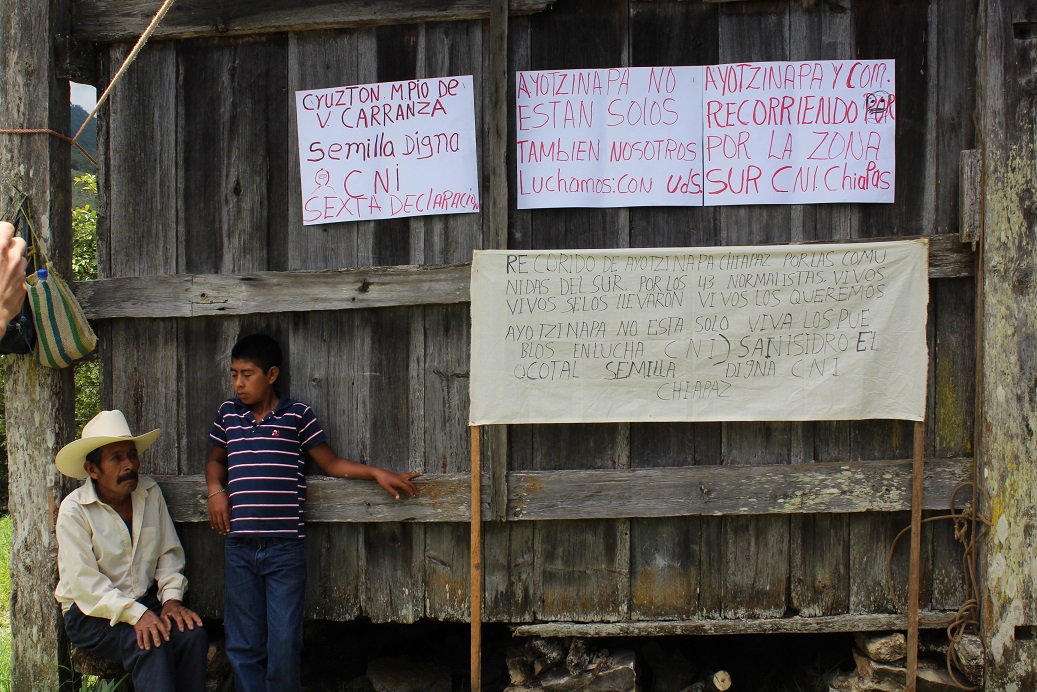 CYUZTON MPIO DE
V CARRANZA
Semilla Digna
CNI
SEXTA DECLARACION
AYOTZINAPA NO
ESTAN SOLOS
TAMBIEN NOSOTROS
LuchAmos.CoN Uds.
AYOTZINAPA Y Com.
RECORRIENDO
POR LA ZONA
SUR CNI. ChiaPas
RECORIDO DE AYOTZINAPA CHIAPAZ POR LAS COMU
NIDAS DEL SUR. POR LOS 43 NORMALISTAS. VIVOS
VIVOS SE LOS LLEVARON VIVOS LOS QUEREMOS
AYOTZINAPA NO ESTA SOLO VIVA LOS PUE
BLOS EN LUCHA CNI) SANISIDRO EL
OCOTAL SEMILLA DIGNA CNI
CHIAPAZ